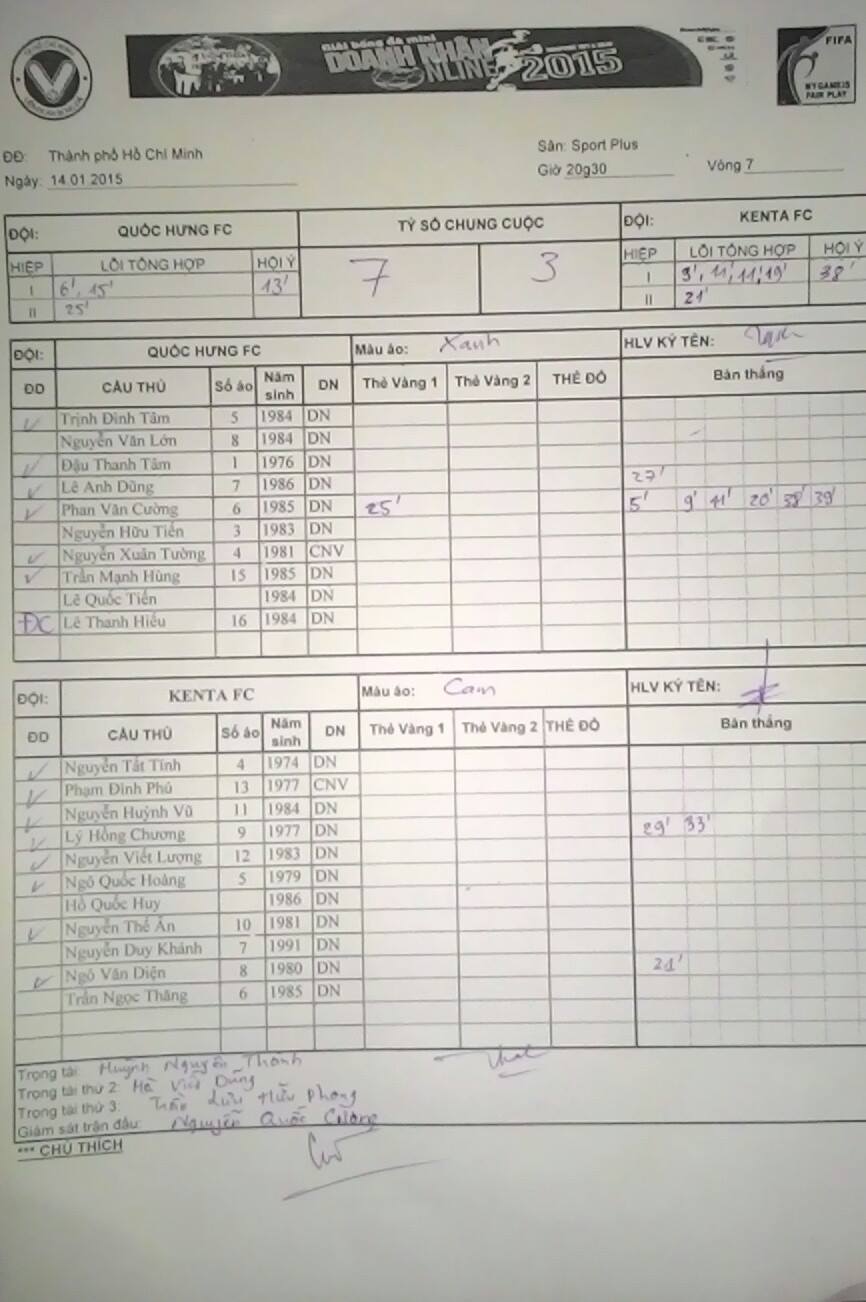 Giải bóng đá mini
DOANH NHÂN
ONLINE 2015
FIFA
MY GAME IS
FAIR PLAY
ĐĐ: Thành phố Hồ Chí Minh
Sân: Sport Plus
Ngày: 14.01.2015
Giờ 20g30
Vòng 7
ĐỘI: QUỐC HƯNG FC TỶ SỐ CHUNG CUỘC ĐỘI: KENTA FC
HIỆP LỖI TỔNG HỢP HỘI Ý 7 3 HIỆP LỖI TỔNG HỢP HỘI Ý
I 6', 15' 13' I 9', 11', 11', 19' 38'
II 25' II 21'
ĐỘI: QUỐC HƯNG FC Màu áo: Xanh HLV KÝ TÊN:
ĐD CẦU THỦ Số áo Năm sinh DN Thẻ Vàng 1 Thẻ Vàng 2 THẺ ĐỎ Bàn thắng
Trịnh Đình Tâm 5 1984 DN
Nguyễn Văn Lớn 8 1984 DN
Đậu Thanh Tâm 1 1976 DN
Lê Anh Dũng 7 1986 DN 27'
Phan Văn Cường 6 1985 DN 25' 5' 9' 11' 20' 38' 39'
Nguyễn Hữu Tiến 3 1983 DN
Nguyễn Xuân Tường 4 1981 CNV
Trần Mạnh Hùng 15 1985 DN
Lê Quốc Tiến 1984 DN
ĐC Lê Thanh Hiếu 16 1984 DN
ĐỘI: KENTA FC Màu áo: Cam HLV KÝ TÊN:
ĐD CẦU THỦ Số áo Năm sinh DN Thẻ Vàng 1 Thẻ Vàng 2 THẺ ĐỎ Bàn thắng
Nguyễn Tất Tính 4 1974 DN
Phạm Đình Phú 13 1977 CNV
Nguyễn Huỳnh Vũ 11 1984 DN
Lý Hồng Chương 9 1977 DN 29' 33'
Nguyễn Viết Lượng 12 1983 DN
Ngô Quốc Hoàng 5 1979 DN
Hồ Quốc Huy 1986 DN
Nguyễn Thế Ân 10 1981 DN
Nguyễn Duy Khánh 7 1991 DN
Ngô Văn Diện 8 1980 DN 21'
Trần Ngọc Thăng 6 1985 DN
Trọng tài: Huỳnh Nguyễn Thành
Trọng tài thứ 2: Hà Viết Dũng
Trọng tài thứ 3: Trần Lưu Hữu Phong
Giám sát trận đấu: Nguyễn Quốc Cường
*** CHÚ THÍCH